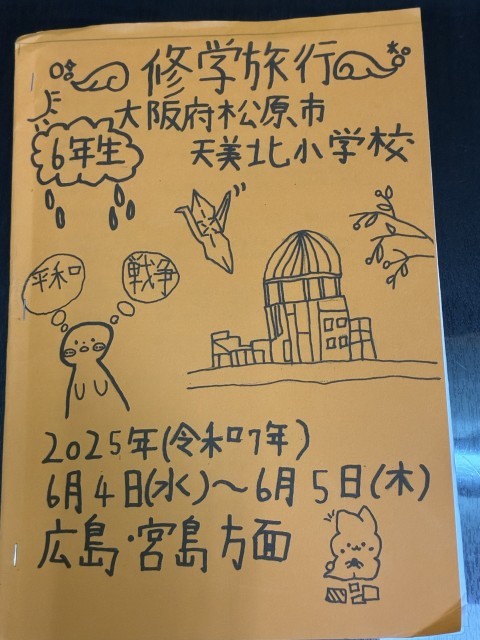 修学旅行
大阪府松原市
6年生
天美北小学校
平和
戦争
2025年(令和7年)
6月4日(水)～6月5日(木)
広島・宮島方面